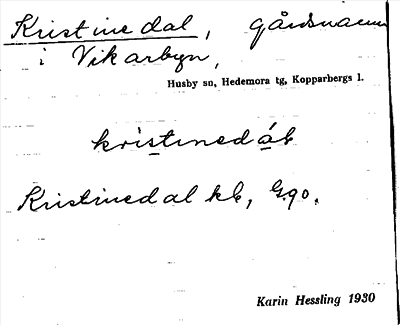 Kristinedal, gårdsnamn
i Vikarbyn,
Husby sn, Hedemora tg, Kopparbergs l.
kristinedáɫ
Kristinedal kb, G.90.
Karin Hessling 1930